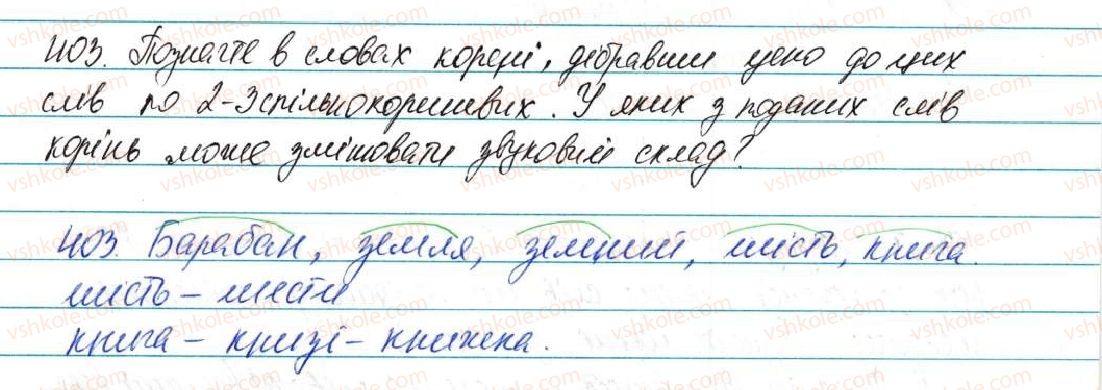 403. Позначте в словах корені, дібравши усно до цих
слів по 2-3 спільнокореневих. У яких з поданих слів
корінь може змінювати звуковий склад?
403. Барабан, земля, земний, шість, книга.
шість - шести
книга - книзі - книжка.
vshkole.com